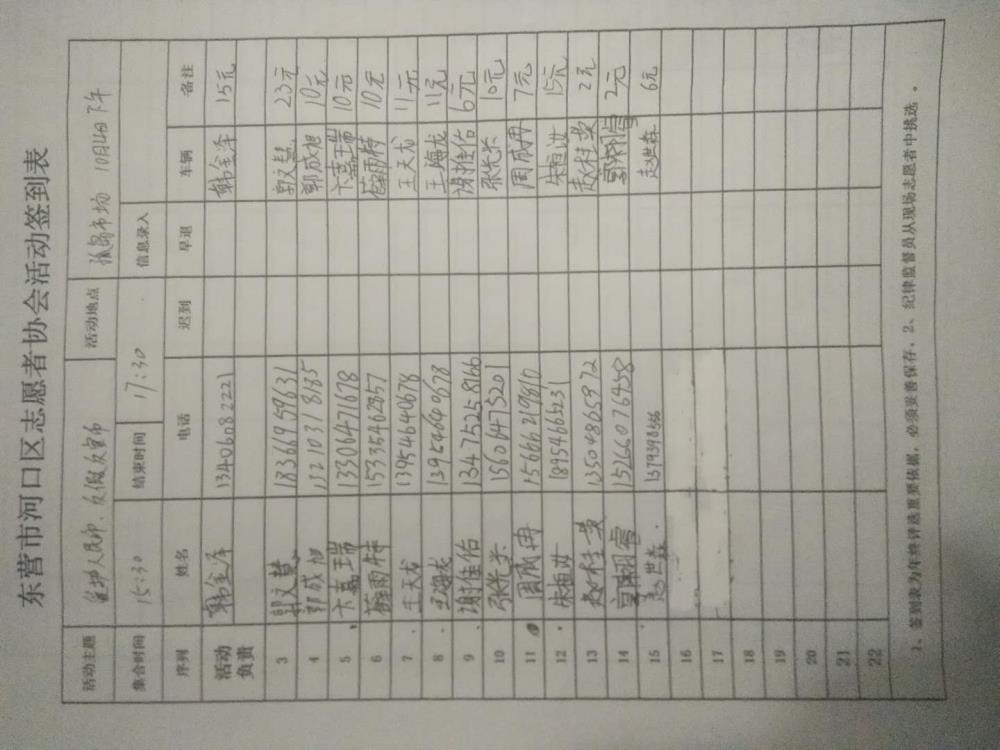 东营市河口区志愿者协会活动签到表
活动主题 活动地点 孤岛市场 10月4日下午
集合时间 15:30 结束时间 17:30 信息录入
序列 姓名 电话 迟到 早退 车辆 备注
活动负责 韩金泽 13406082221 韩金泽 15元
3 郭文慧 18366959631 郭文慧 23元
4 郭成旭 15210318185 郭成旭 10元
5 卞嘉瑞 13306471678 卞嘉瑞 10元
6 薛雨特 薛雨特 10元
7 王天龙 13954640678 王天龙 11元
8 王海龙 13954640678 王海龙 11元
9 谢佳佑 13475258166 谢佳佑 6元
10 15606475201 10元
11 周成冉 15666219810 周成冉 7元
12 朱恒汝 18954665231 朱恒汝 15元
13 赵桂英 13504865972 赵桂英 2元
14 15266076458 2元
15 赵世淼 赵世淼 6元
16
17
18
19
20
21
22
1、签到表为年终评选重要依据，必须妥善保存、2、纪律监督员从现场志愿者中挑选。